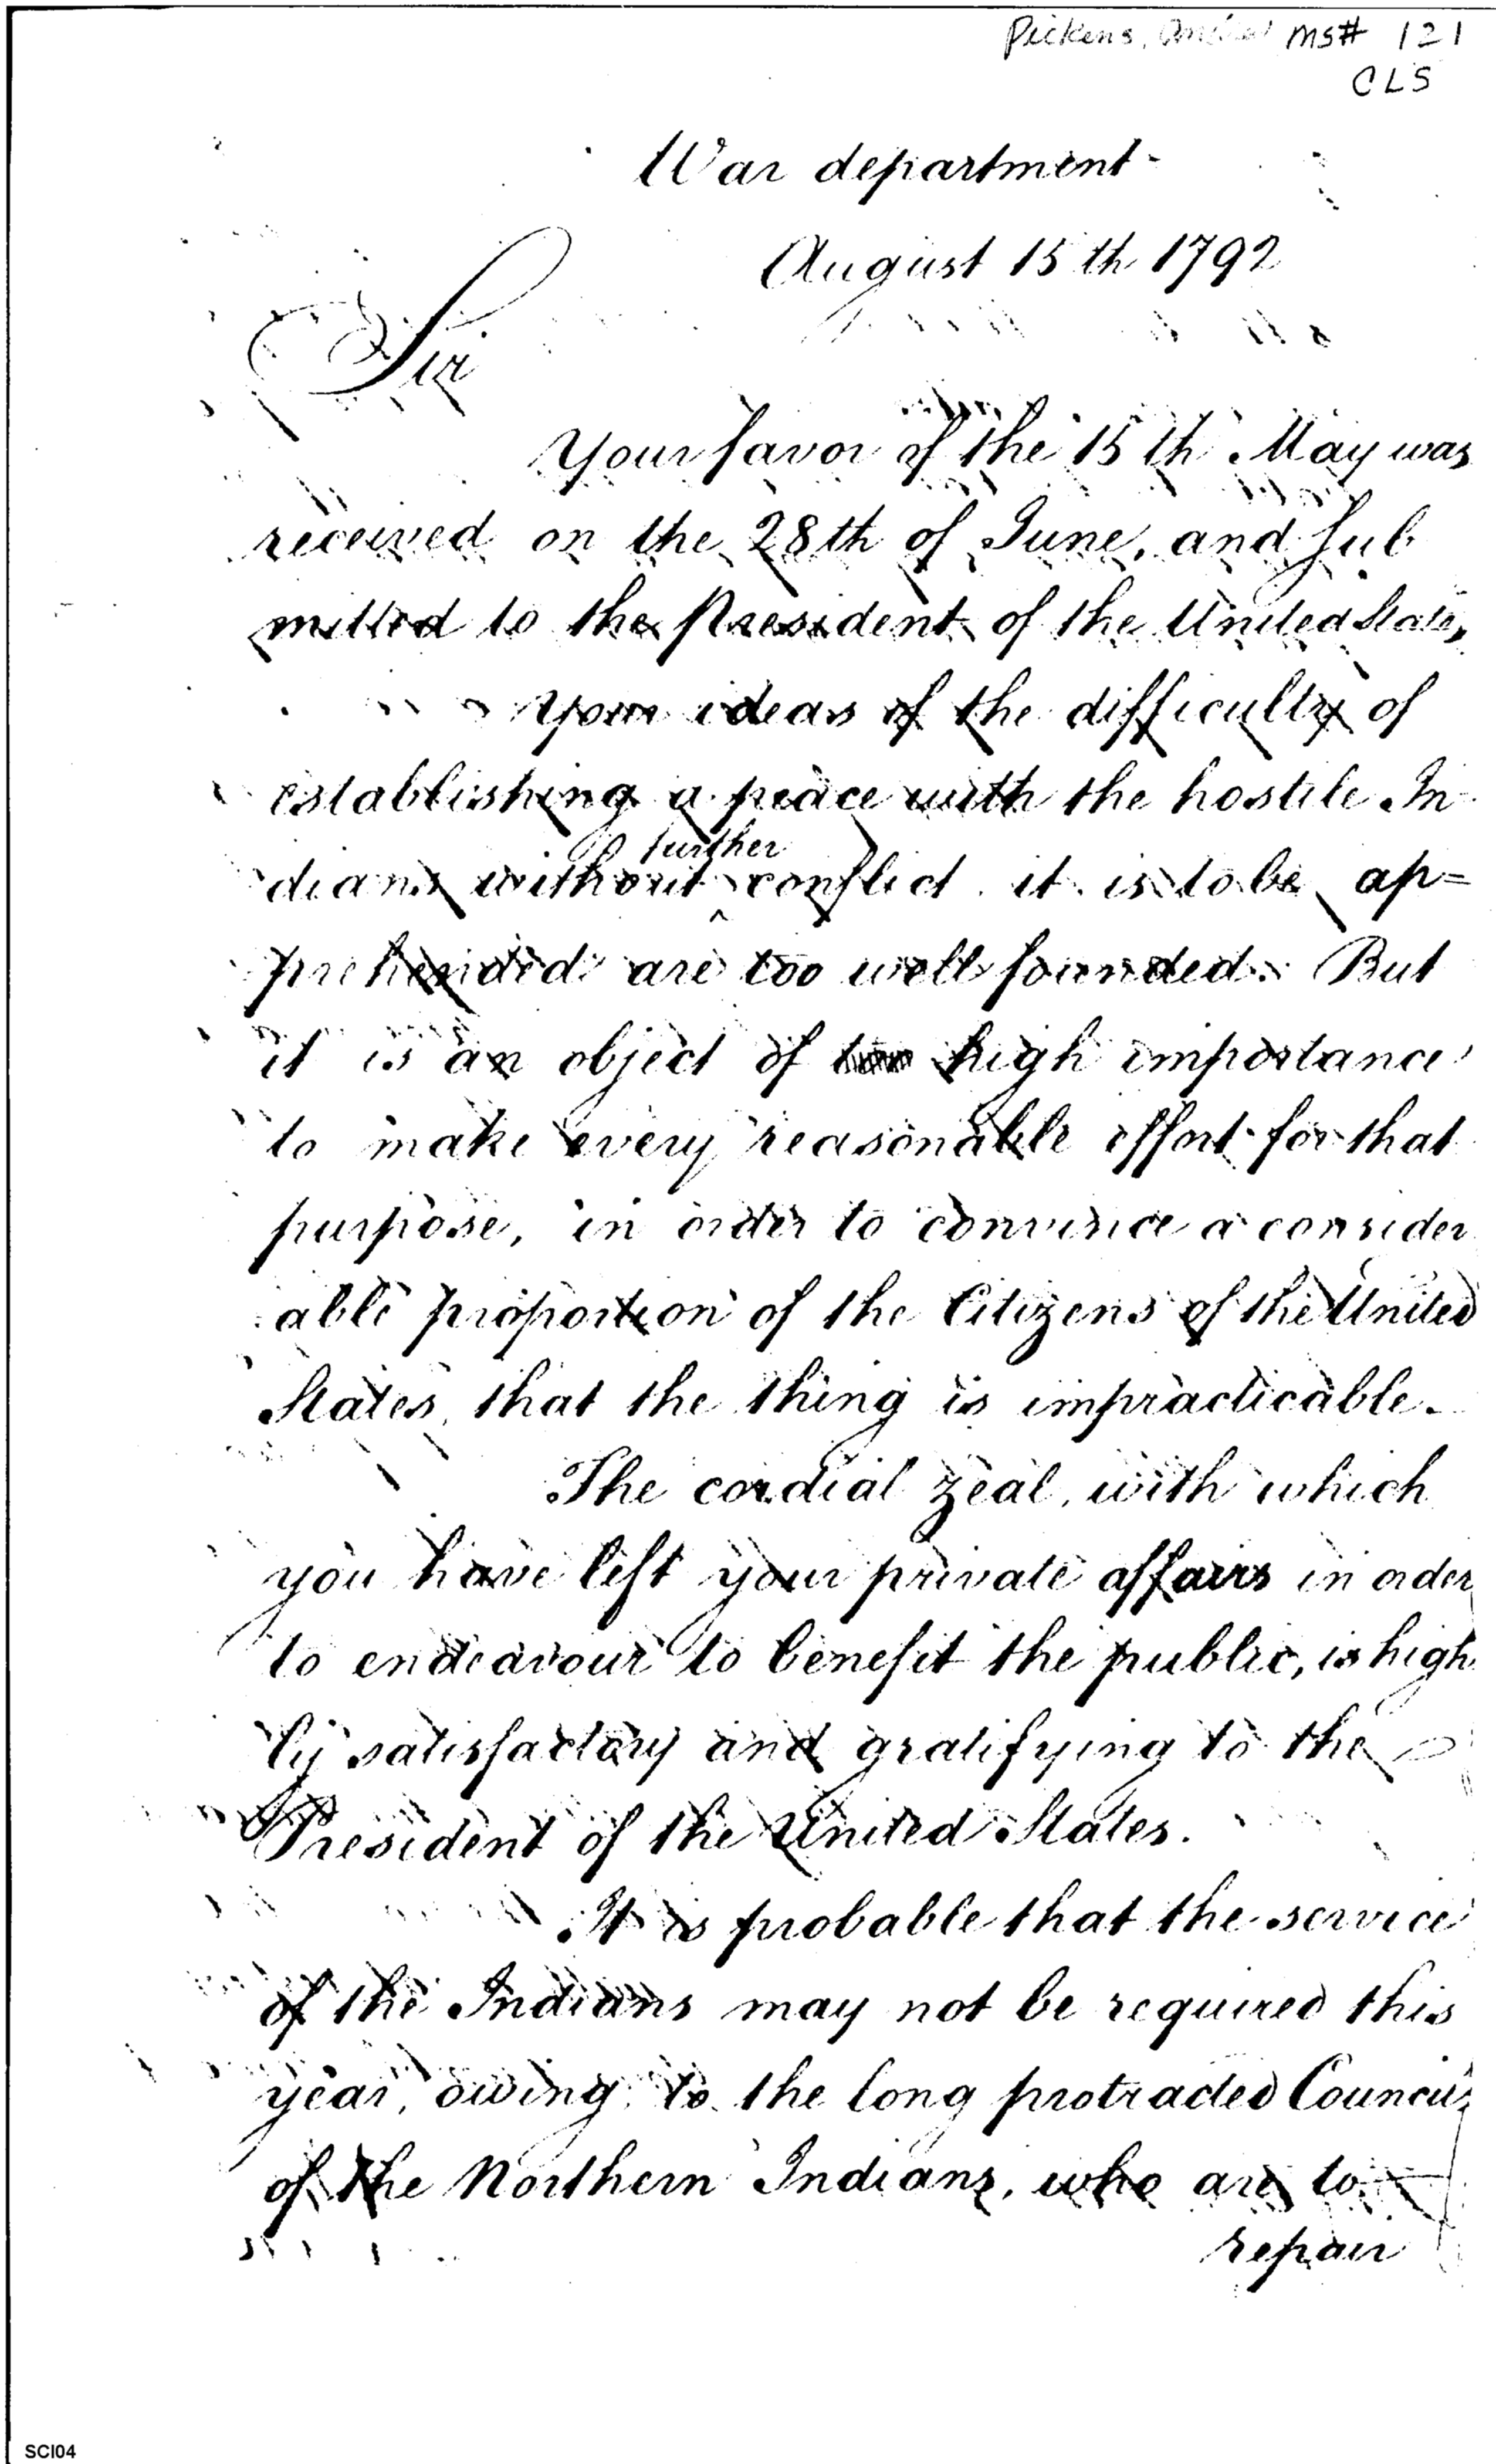 Pickens, Andrew MS# 121
CLS
War department
August 15th 1792
Sir
Your favor of the 15th May was
received on the 28th of June, and sub
mitted to the President of the United States,
Your ideas of the difficulty of
establishing a peace with the hostile In
dians without further conflict it is to be ap=
prehended are too well founded. But
it is an object of high importance
to make every reasonable effort for that
purpose, in order to convince a consider
able proportion of the Citizens of the United
States, that the thing is impracticable.
The cordial zeal, with which
you have left your private affairs in order
to endeavour to benefit the public, is high
ly satisfactory and gratifying to the
President of the United States.
It is probable that the service
of the Indians may not be required this
year, owing to the long protracted Councils
of the Northern Indians, who are to
repair
SCI04